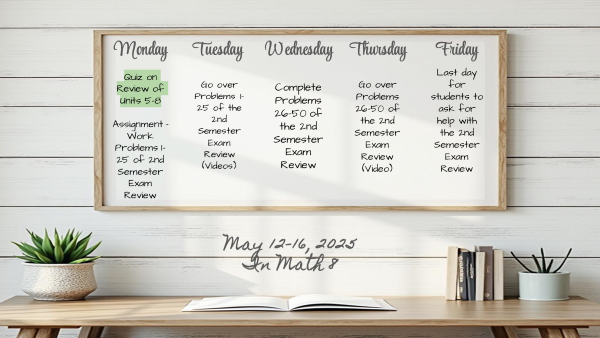 Monday
Quiz on
Review of
Units 5-8
Assignment -
Work
Problems 1-
25 of 2nd
Semester
Exam
Review
Tuesday
Go over
Problems 1-
25 of the
2nd
Semester
Exam
Review
(Videos)
Wednesday
Complete
Problems
26-50 of
the 2nd
Semester
Exam
Review
Thursday
Go over
Problems
26-50 of
the 2nd
Semester
Exam
Review
(Video)
Friday
Last day
for
students to
ask for
help with
the 2nd
Semester
Exam
Review
May 12-16, 2025
In Math 8